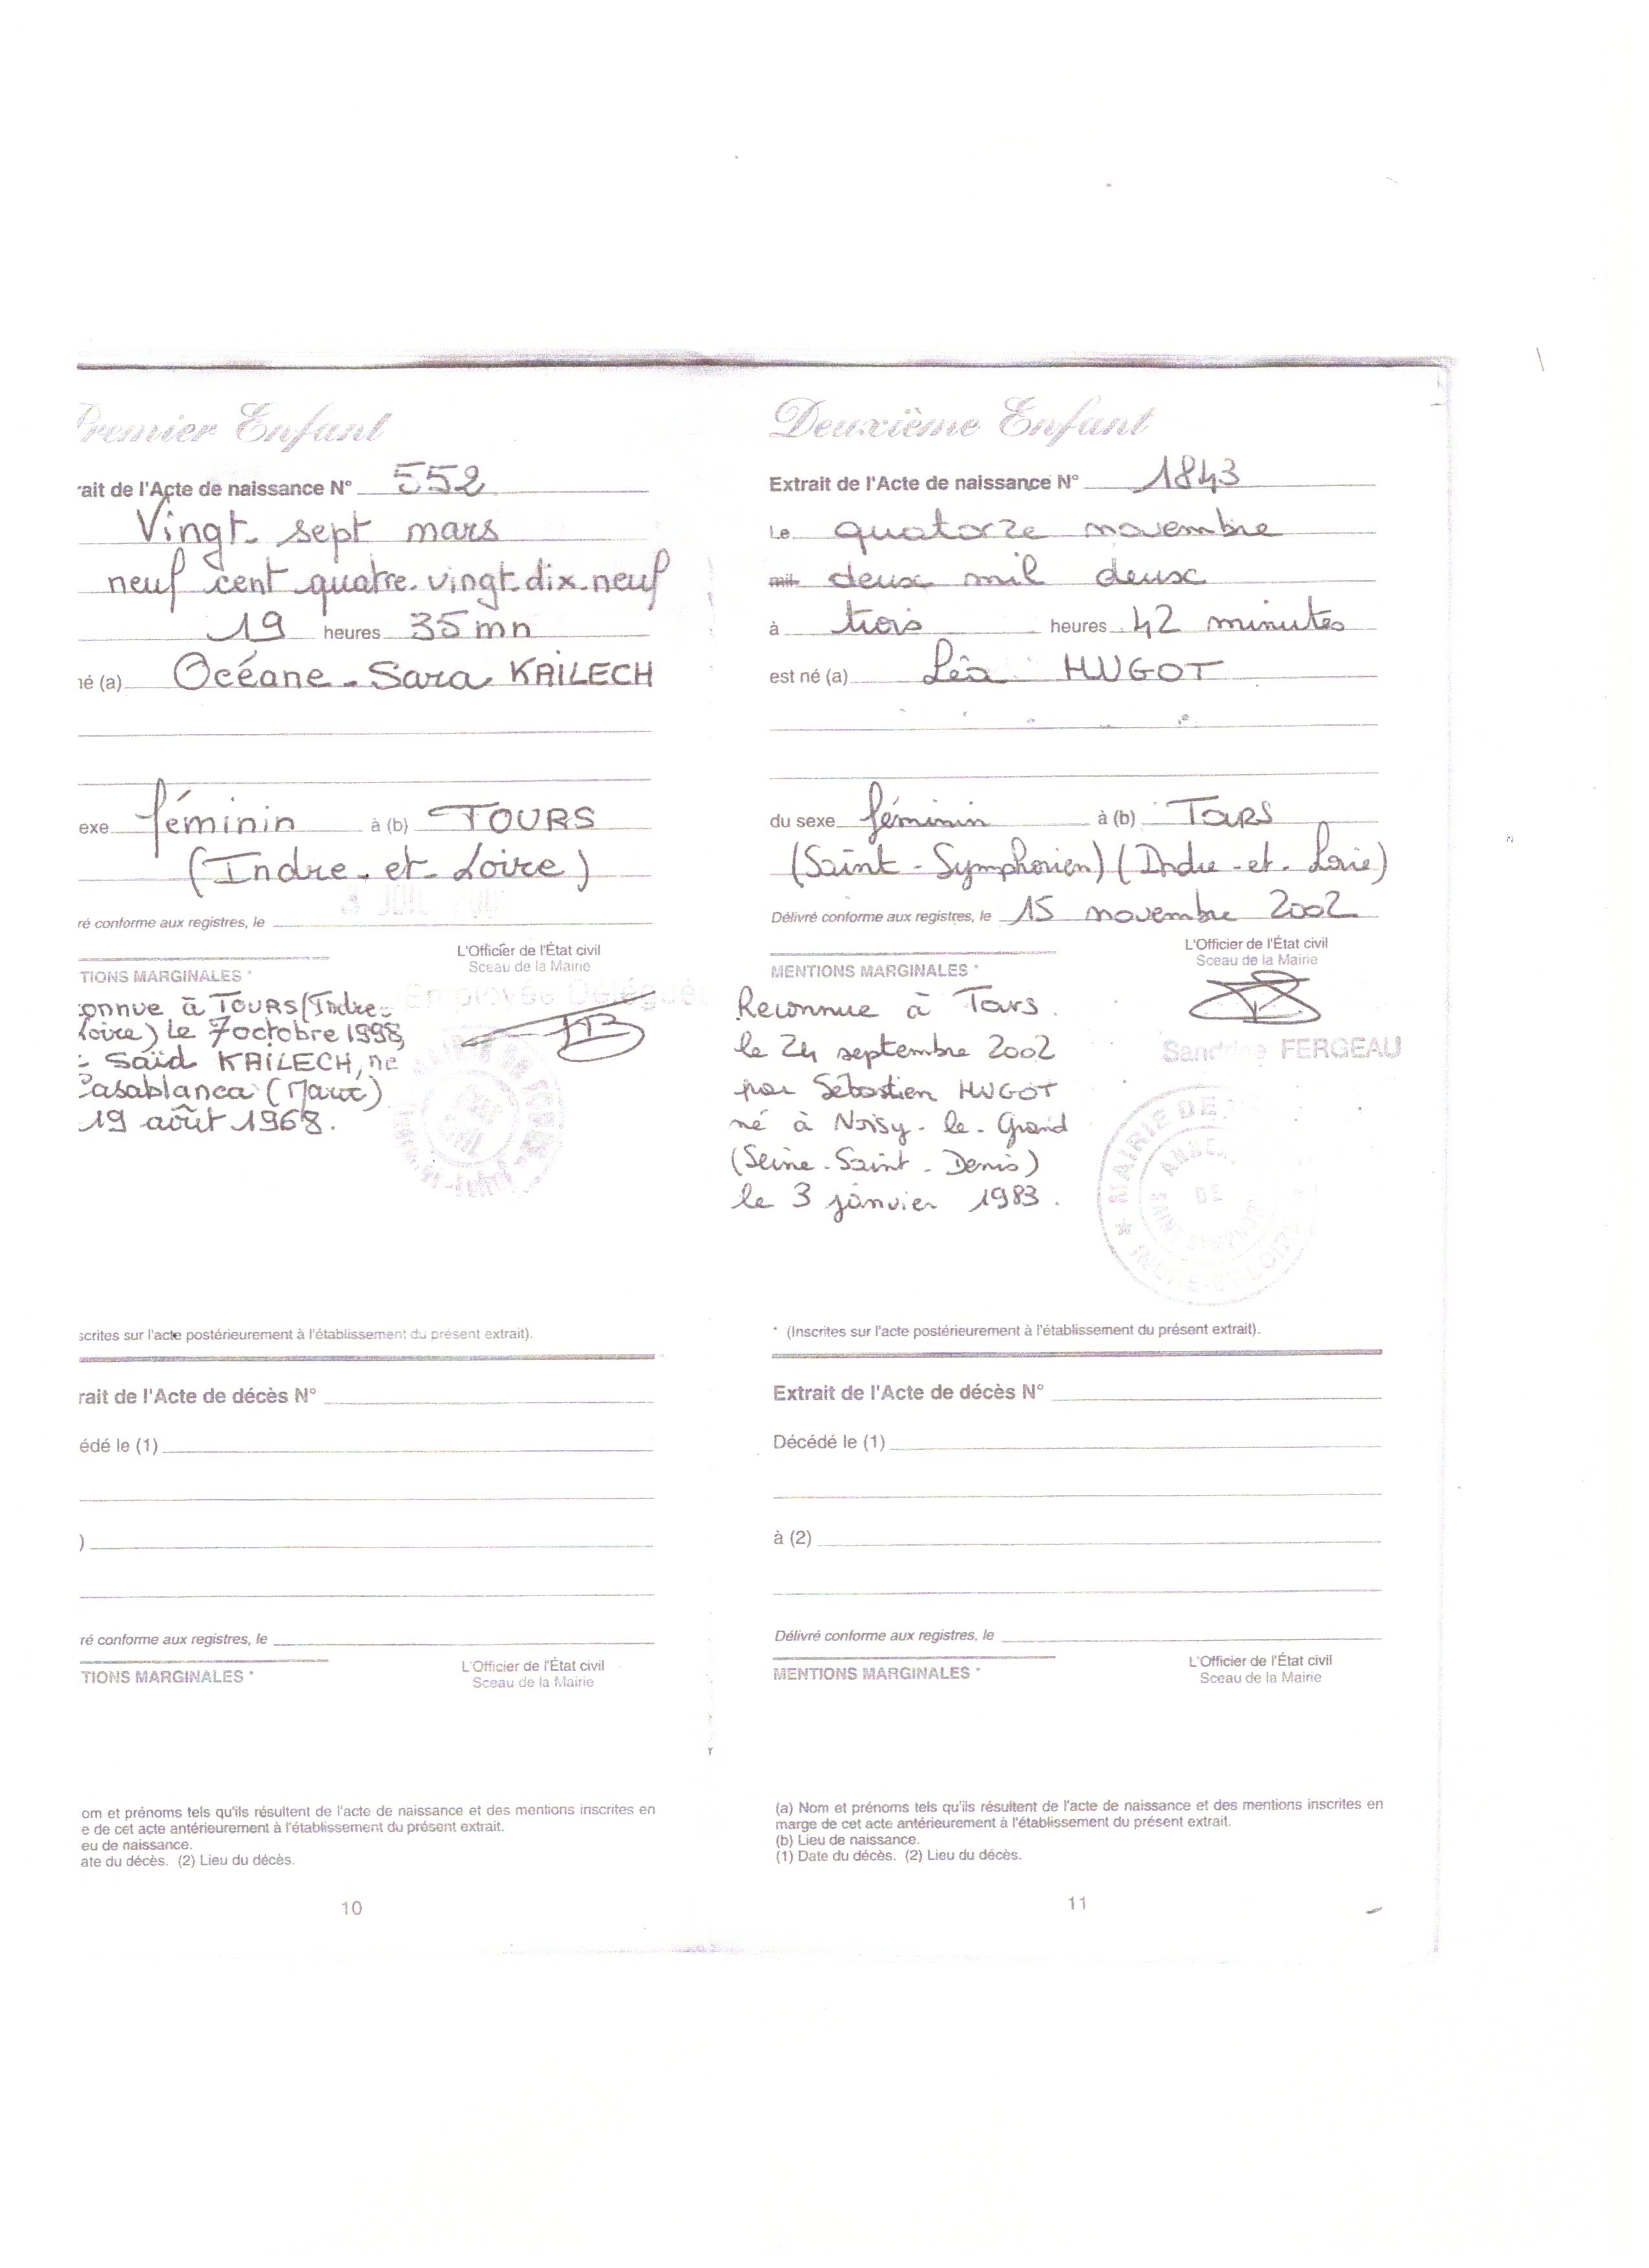 Premier Enfant
rait de l'Acte de naissance N° 552
Vingt-sept mars
neuf cent quatre-vingt-dix-neuf
19 heures 35 mn
né (a) Océane-Sara KAILECH
exe féminin à (b) TOURS
(Indre-et-Loire)
ré conforme aux registres, le
L'Officier de l'État civil
Sceau de la Mairie
TIONS MARGINALES *
Employée Déléguée
onnue à TOURS (Indre-
Loire) le 7 octobre 1998,
Saïd KAILECH, né
Casablanca (Maroc)
19 août 1968.
scrites sur l'acte postérieurement à l'établissement du présent extrait).
rait de l'Acte de décès N°
édé le (1)
)
ré conforme aux registres, le
L'Officier de l'État civil
Sceau de la Mairie
TIONS MARGINALES *
om et prénoms tels qu'ils résultent de l'acte de naissance et des mentions inscrites en
e de cet acte antérieurement à l'établissement du présent extrait.
eu de naissance.
ate du décès. (2) Lieu du décès.
10
Deuxième Enfant
Extrait de l'Acte de naissance N° 1843
Le quatorze novembre
mil deux mil deux
à trois heures 42 minutes
est né (a) Léa HUGOT
du sexe féminin à (b) Tours
(Saint-Symphorien) (Indre-et-Loire)
Délivré conforme aux registres, le 15 novembre 2002
L'Officier de l'État civil
Sceau de la Mairie
MENTIONS MARGINALES *
Reconnue à Tours
le 24 septembre 2002
par Sébastien HUGOT
né à Noisy-le-Grand
(Seine-Saint-Denis)
le 3 janvier 1983.
Sandrine FERGEAU
MAIRIE DE
INDRE-ET-LOIRE
* (Inscrites sur l'acte postérieurement à l'établissement du présent extrait).
Extrait de l'Acte de décès N°
Décédé le (1)
à (2)
Délivré conforme aux registres, le
L'Officier de l'État civil
Sceau de la Mairie
MENTIONS MARGINALES *
(a) Nom et prénoms tels qu'ils résultent de l'acte de naissance et des mentions inscrites en
marge de cet acte antérieurement à l'établissement du présent extrait.
(b) Lieu de naissance.
(1) Date du décès. (2) Lieu du décès.
11